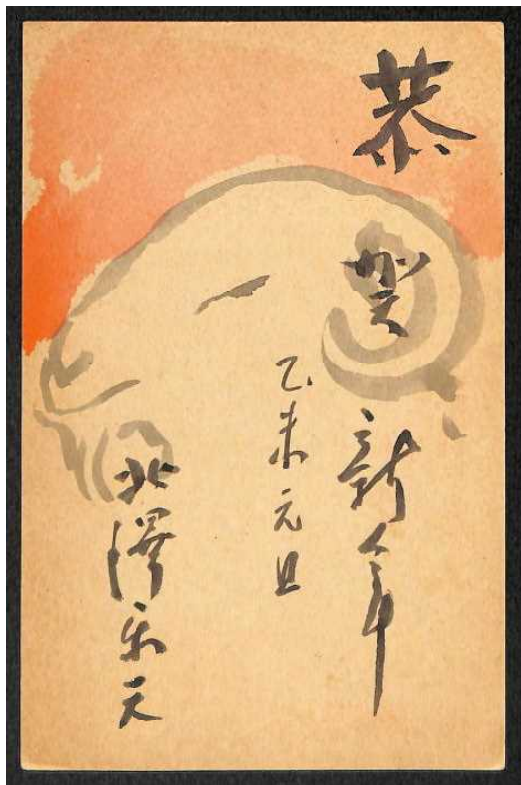 恭賀新年
乙未元旦
北澤楽天